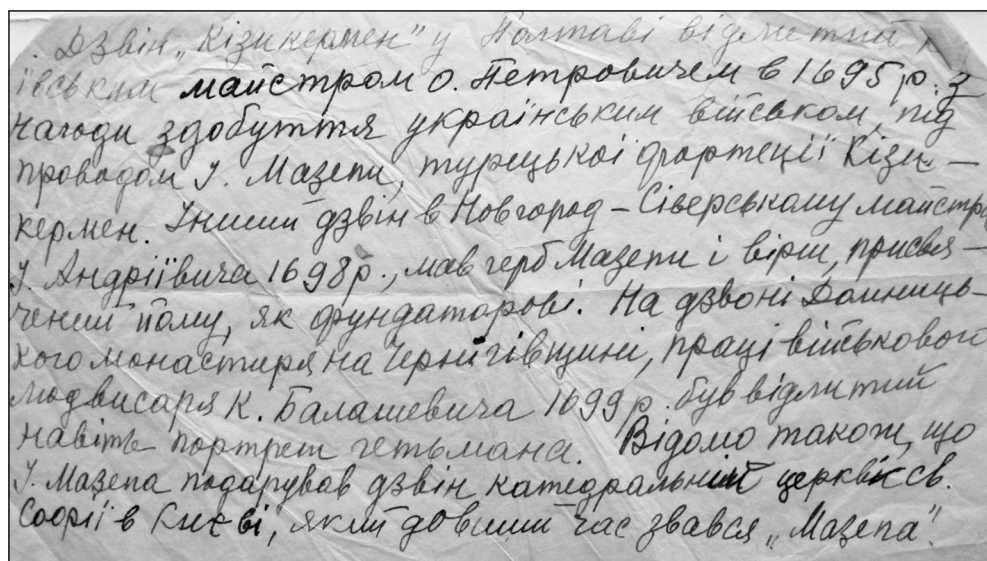 Дзвін „Кізикермен" у Полтаві відлитий к
ївським майстром О. Петровичем в 1695 р. з
нагоди здобуття українським військом, під
проводом І. Мазепи, турецької фортеції Кізи-
кермен. Інший дзвін в Новгород-Сіверському майстра
І. Андріївича 1698 р., мав герб Мазепи і вірш, присвя-
чений йому, як фундаторові. На дзвоні Домниць-
кого монастиря на Чернігівщині, праці військового
людвисаря К. Балашевича 1699 р. був відлитий
навіть портрет гетьмана. Відомо також, що
І. Мазепа подарував дзвін катедральній церкві св.
Софії в Києві, який довший час звався „Мазепа".